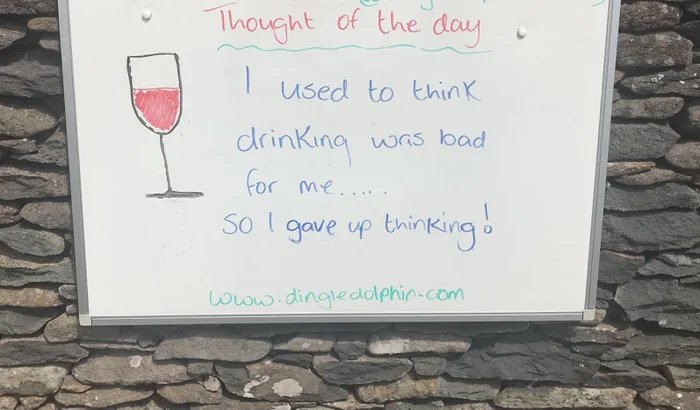 Thought of the day
I used to think
drinking was bad
for me.....
so I gave up thinking!
www.dingledolphin.com